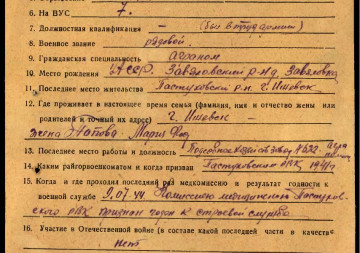 6. На ВУС 7.
7. Должностная квалификация — (был в трудармии)
8. Военное звание рядовой.
9. Гражданская специальность агроном
10. Место рождения УАССР. Завьяловский р-н д. Завьялово
11. Последнее место жительства Пастуховский р-н. г. Ижевск
12. Где проживает в настоящее время семья (фамилия, имя и отчество жены или
родителей и точный их адрес) г. Ижевск —
жена Мария
13. Последнее место работы и должность
14. Каким райгорвоенкоматом и когда призван Пастуховским РВК
15. Когда и где проходил последний раз медкомиссию и результат годности к
военной службе 9.07.44. Комиссию Пастухов-
ского РВК признан годен к строевой службе.
16. Участие в Отечественной войне (в составе какой последней части в качеств
нет